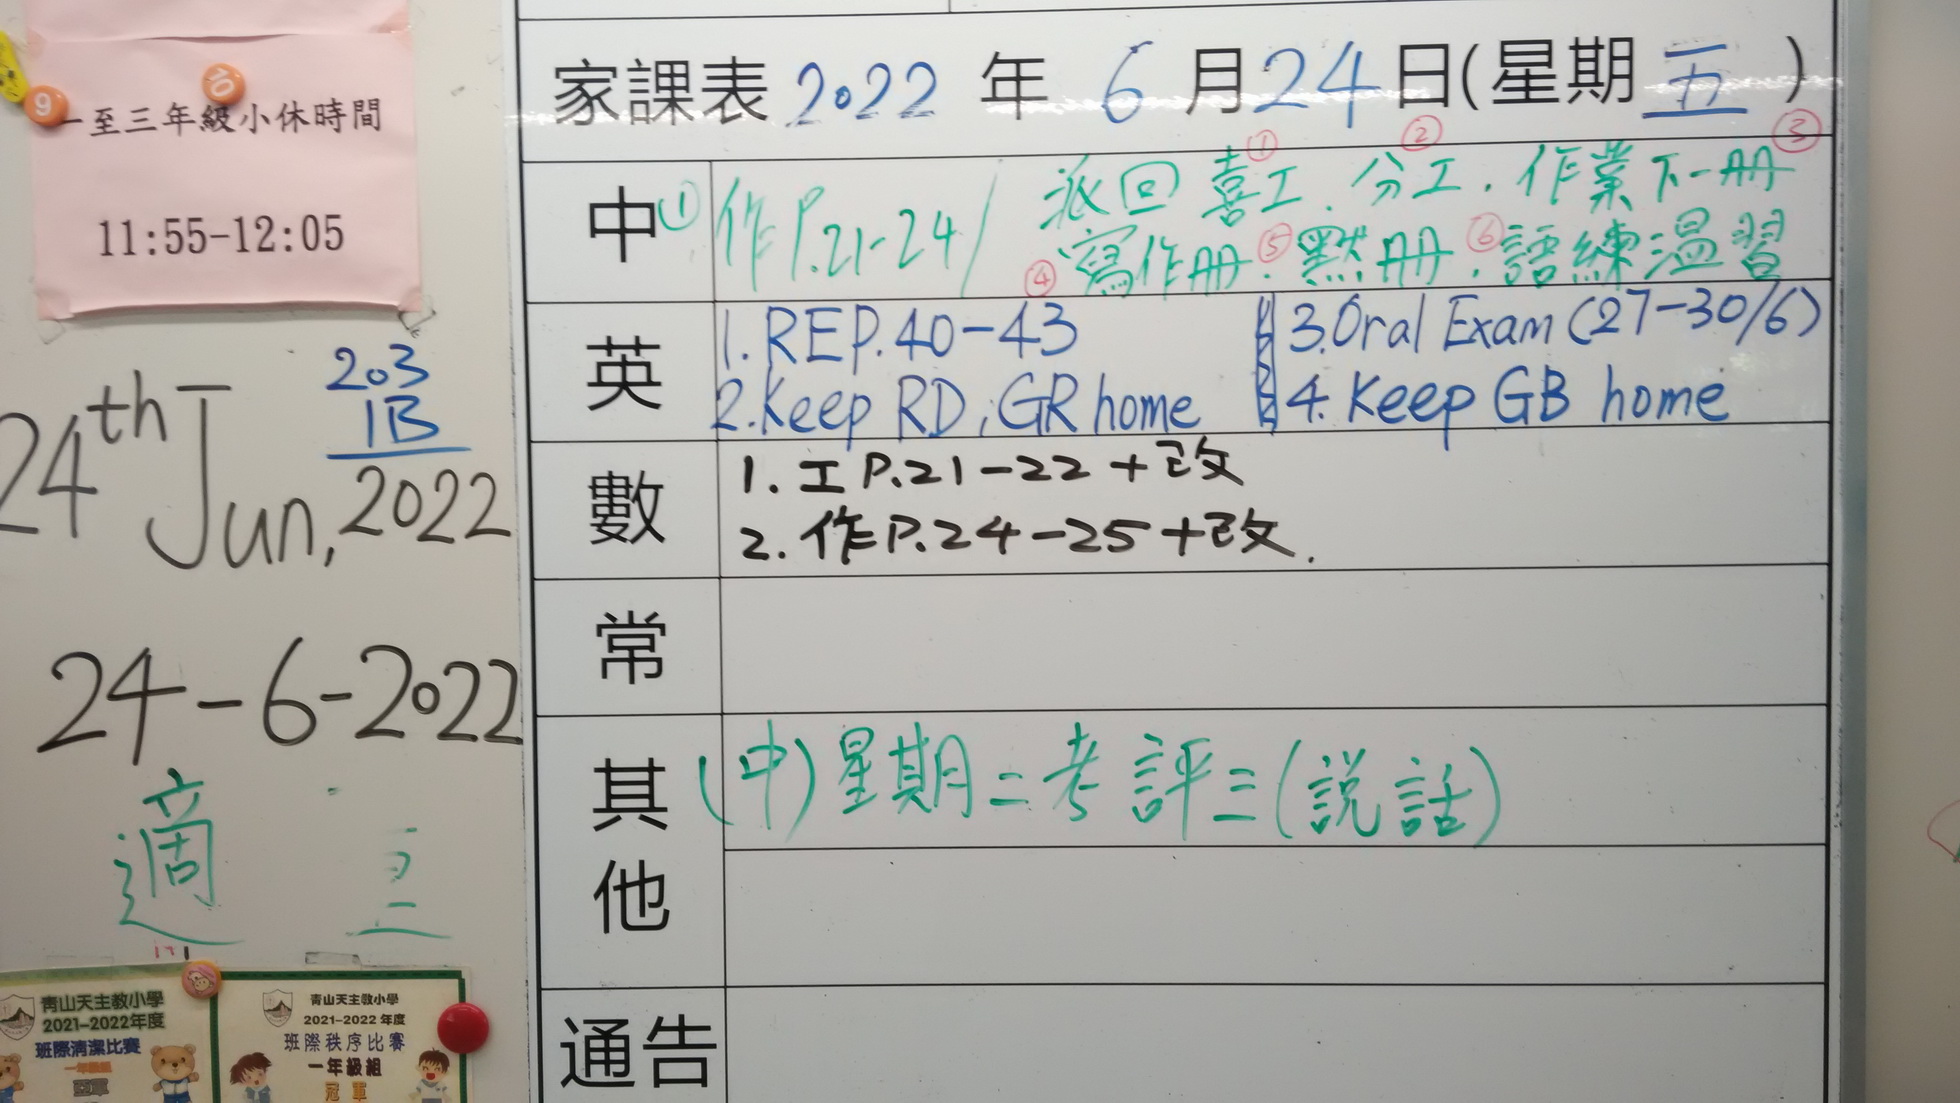 一至三年級小休時間
11:55-12:05
9
六
203
1B
24th Jun, 2022
24-6-2022
適
青山天主教小學
2021-2022年度
班際清潔比賽
一年級組
亞軍
青山天主教小學
2021-2022年度
班際秩序比賽
一年級組
冠軍
家課表 2022 年 6 月 24 日(星期五)
中 ① 作P.21-24/ 派回 ①喜工. ②分工. ③作業下一冊
④寫作冊. ⑤默冊. ⑥語練溫習
英 1. REP.40-43 3.Oral Exam (27-30/6)
2.Keep RD, GR home 4. Keep GB home
數 1. 工P.21-22+改
2. 作P.24-25+改.
常
其他 (中)星期二考評三(説話)
通告